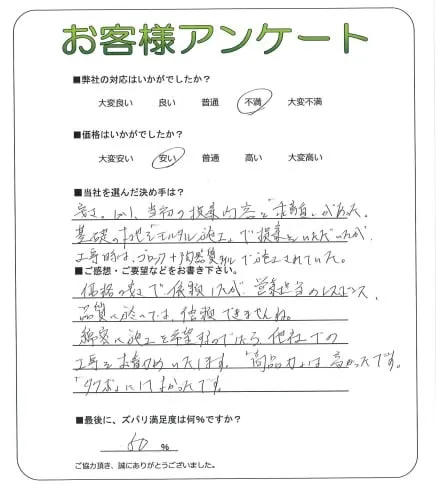 お客様アンケート
■弊社の対応はいかがでしたか？
大変良い 良い 普通 不満 大変不満
■価格はいかがでしたか？
大変安い 安い 普通 高い 大変高い
■当社を選んだ決め手は？
安さ。しかし、当初の提案内容と「相違」があった。
基礎の を「モルタル施工」で提案をいただいたが、
工事時は、ブロック+ で施工されていた。
■ご感想・ご要望などをお書き下さい。
価格の安さで依頼したが、営業担当のレスポンス、
品質に於いては、信頼できませんね。
綺麗に施工を希望するのでしたら、他社での
工事をお勧めいたします。「商品力」は高かったです。
「タクボ」にしてよかったです。
■最後に、ズバリ満足度は何%ですか？
50 %
ご協力頂き、誠にありがとうございました。